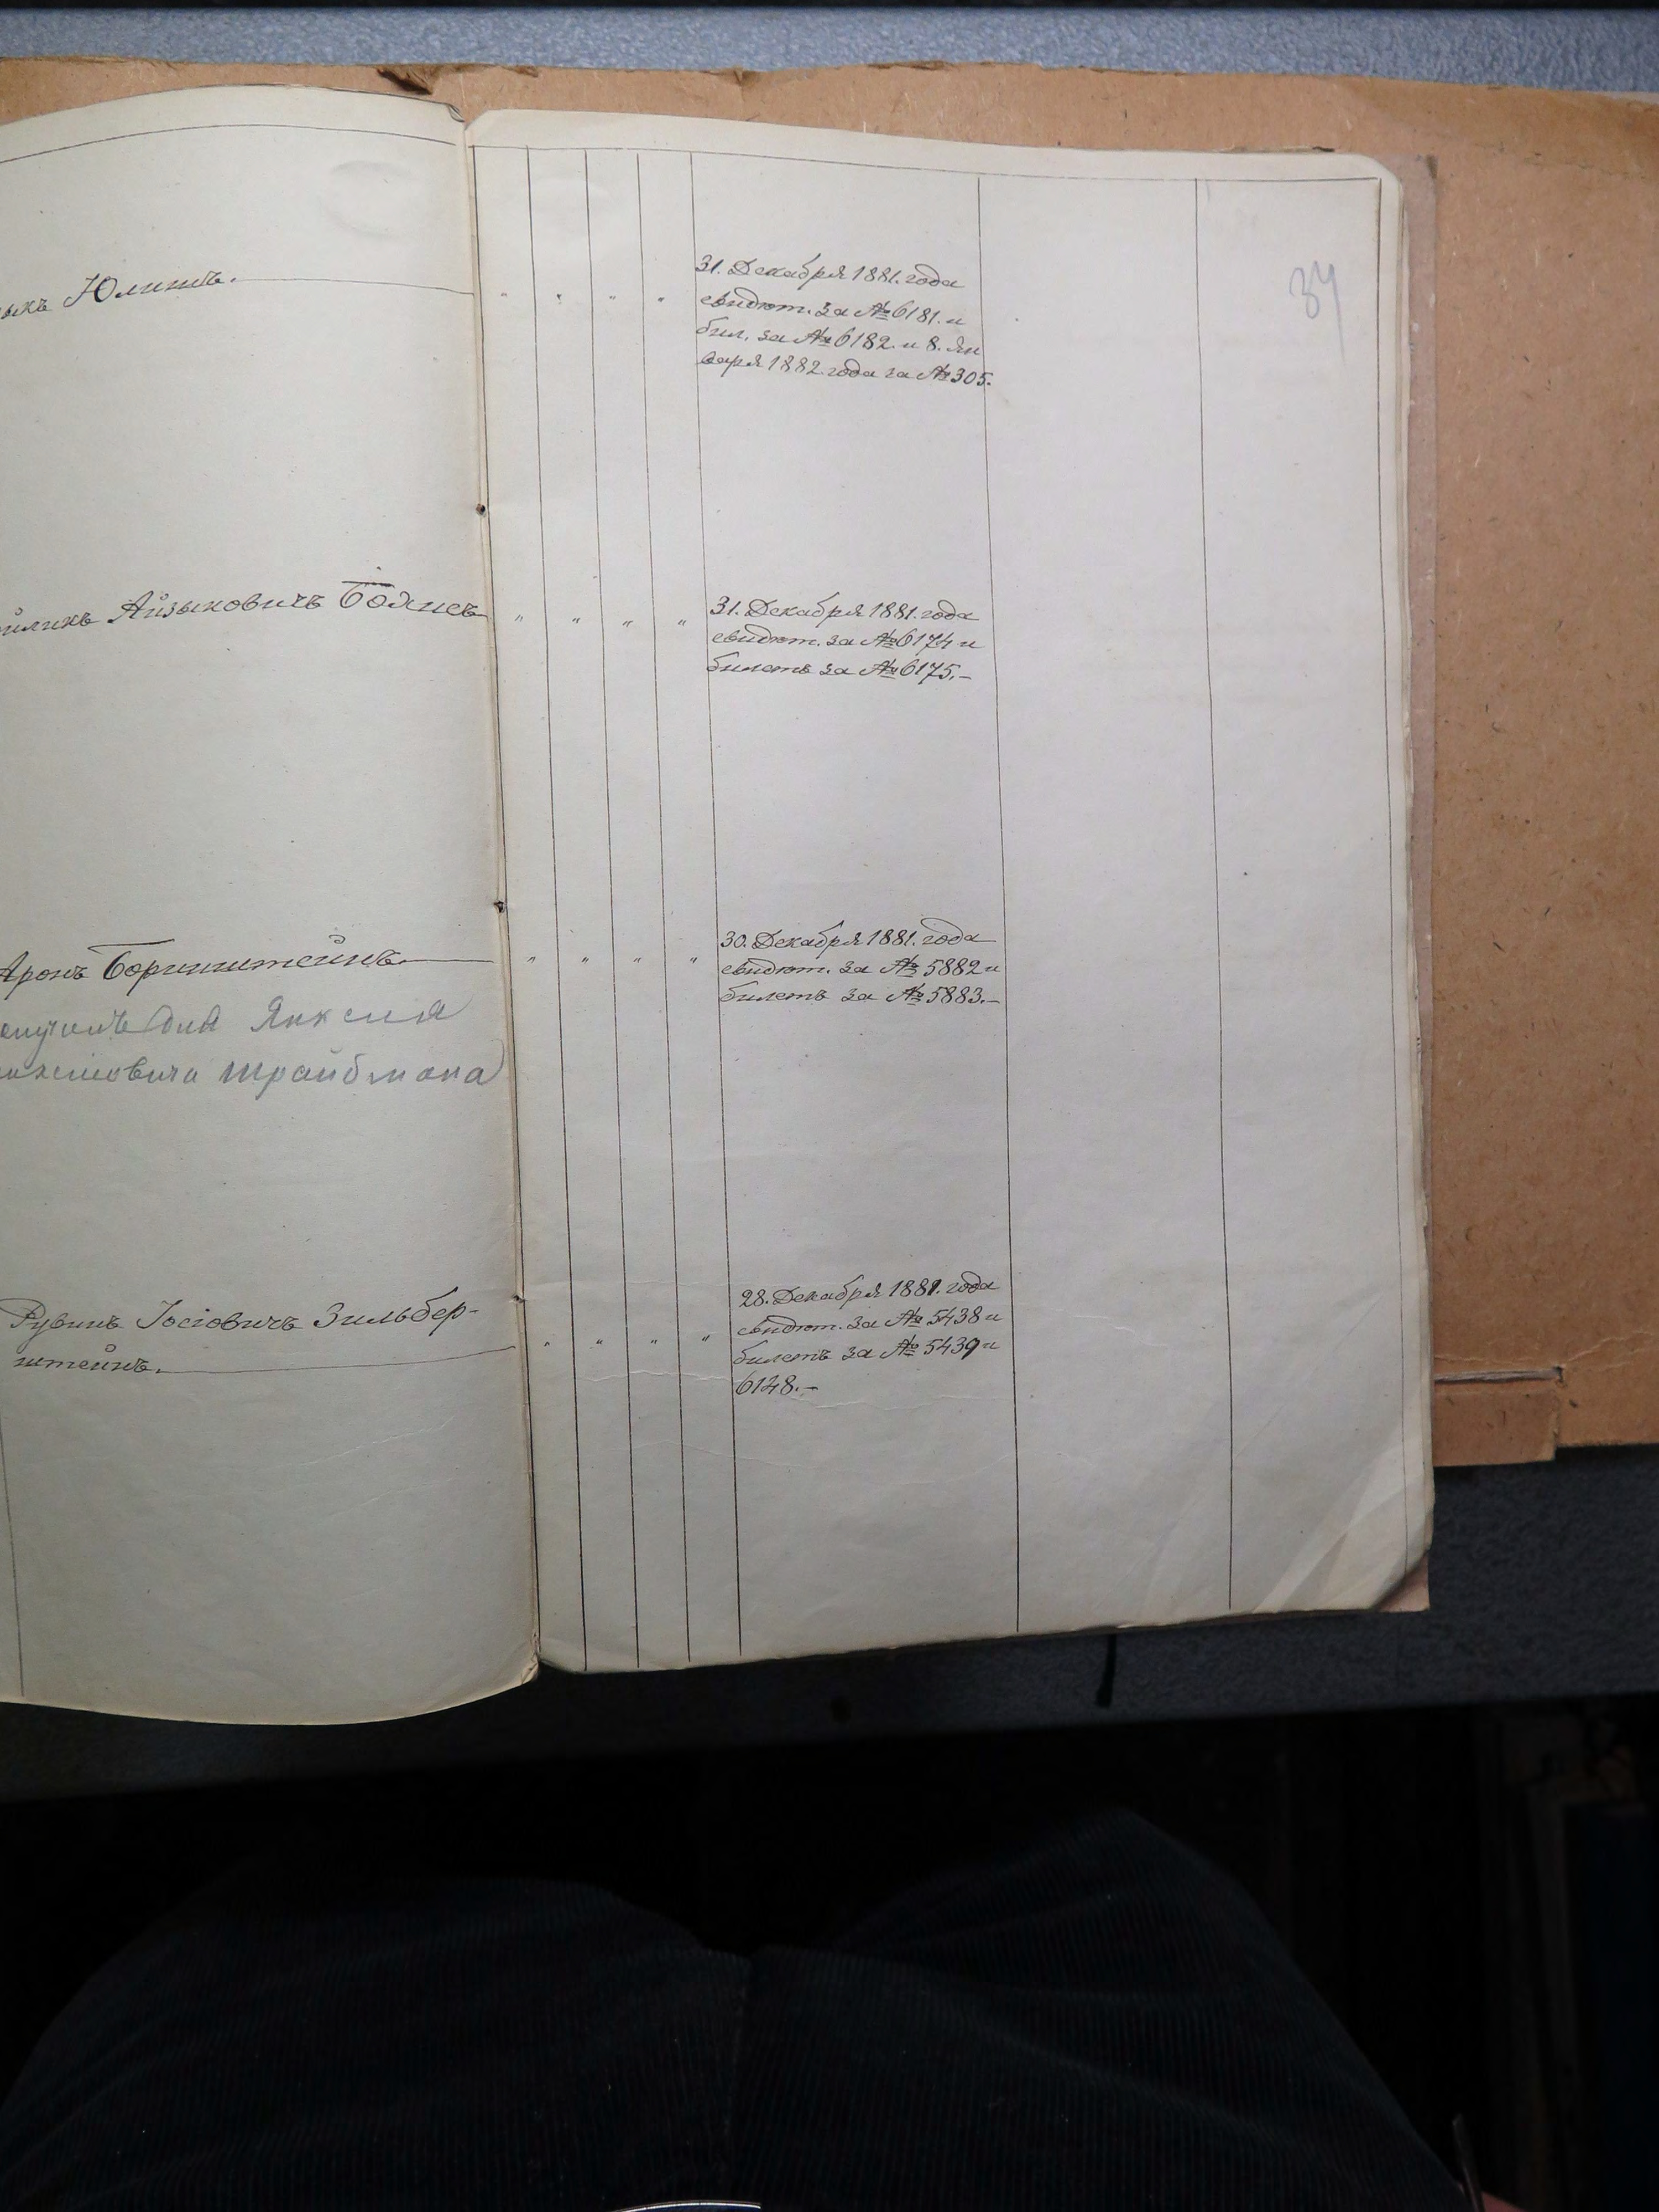 34
Юлитъ.
31. Декабря 1881. года
свидѣт. за № 6181. и
бил. за № 6182. и 8. Ян
варя 1882 года за № 305.
Айзыковичъ
31. Декабря 1881. года
свидѣт. за № 6174 и
билетъ за № 6175.–
Аронъ Борнштейнъ.
Янкеля
Трайбмана
30. Декабря 1881. года
свидѣт. за № 5882 и
билетъ за № 5883.–
Рувинъ Іосіовичъ Зильбер-
штейнъ.
28. Декабря 1881. года
свидѣт. за № 5438 и
билетъ за № 5439 и
6148.–